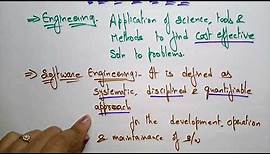 ⇒ Engineering:- Application of science, tools &
Methods to find cost effective
Soln to problems.
⇒ Software Engineering:- It is defined as
systematic, disciplined & quantifiable
approach
for the development, operation
& maintainance of s/w